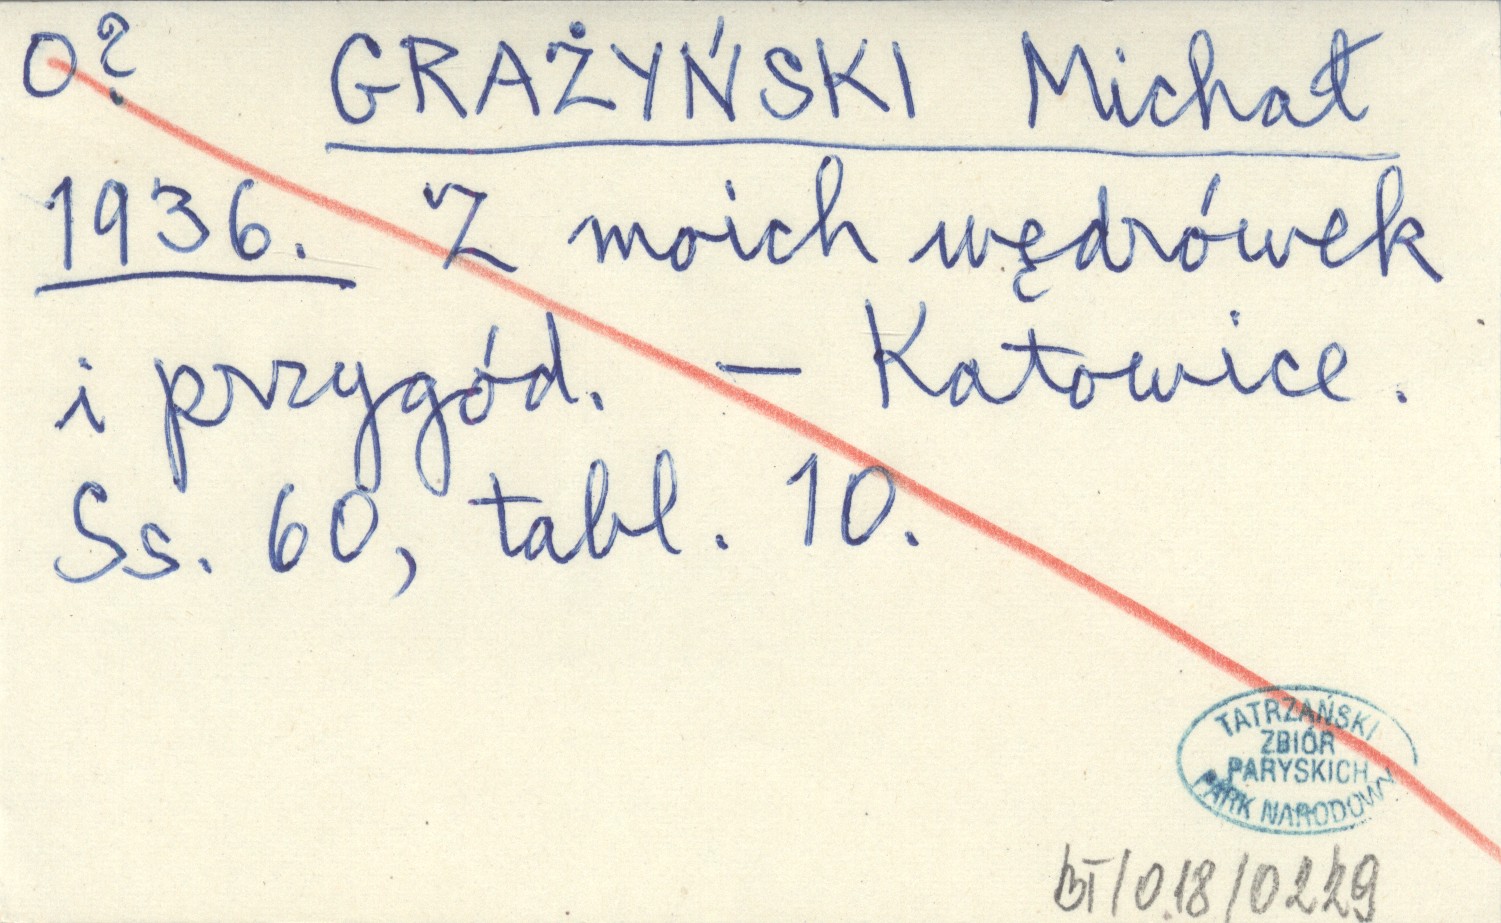 O? GRAŻYŃSKI Michał
1936. Z moich wędrówek
i przygód. — Katowice.
Ss. 60, tabl. 10.
TATRZAŃSKI
ZBIÓR
PARYSKICH
PARK NARODOWY
BT/018/0229